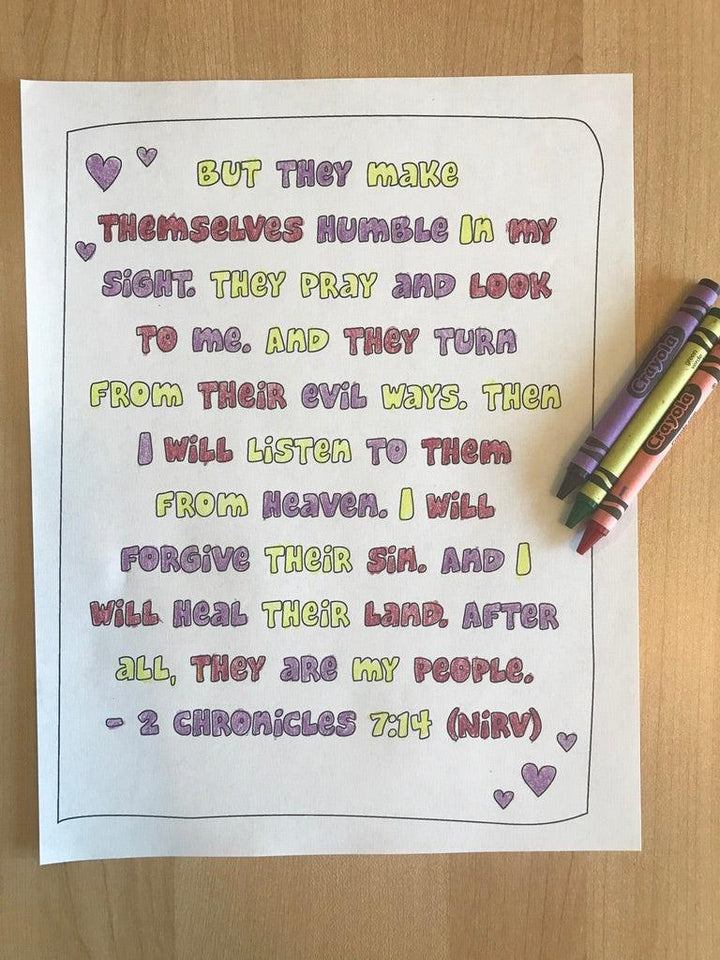 BUT THEY make
THEMSELVES HUMBLE In my
SiGHT. THEY PRAY and LOOK
TO me. AnD THEY TURn
FROm THEiR eViL WAYS. THEn
I WiLL LiSTEn TO THEm
FROm HEAVEn. I WiLL
FORGiVE THEiR Sin. AnD I
WiLL HEAL THEiR LanD. AFTER
aLL, THEY aRE my PEOPLE.
- 2 CHROniCLES 7:14 (NiRV)
Crayola
Crayola